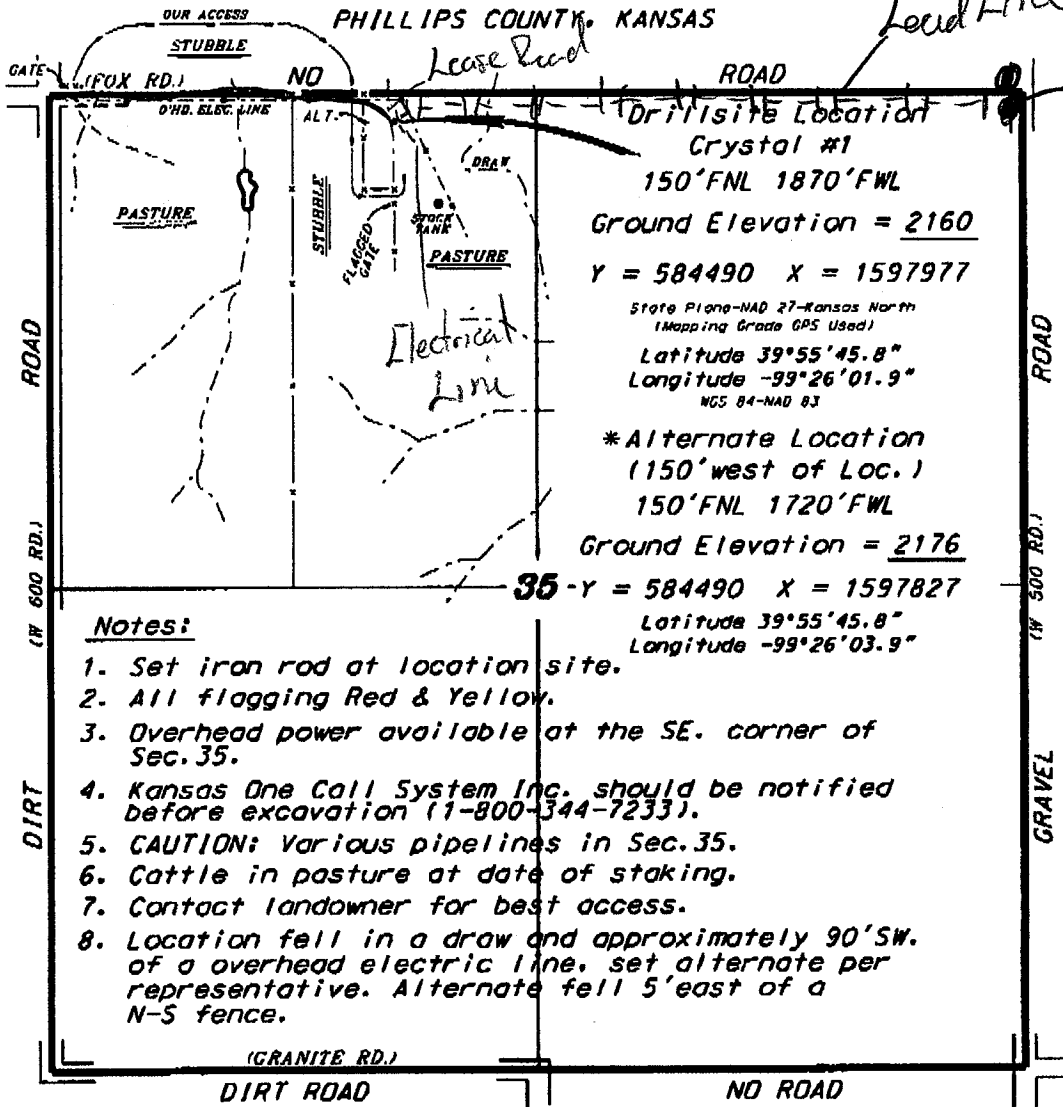 PHILLIPS COUNTY, KANSAS
OUR ACCESS
STUBBLE
Lease Road
GATE
(FOX RD.)
NO
ROAD
O'HD. ELEC. LINE
ALT.
DRAW
PASTURE
STUBBLE
FLAGGED
GATE
STOCK
TANK
PASTURE
Electrical
Line
Drillsite Location
Crystal #1
150'FNL 1870'FWL
Ground Elevation = 2160
Y = 584490 X = 1597977
State Plane-NAD 27-Kansas North
(Mapping Grade GPS Used)
Latitude 39°55'45.8"
Longitude -99°26'01.9"
WGS 84-NAD 83
*Alternate Location
(150'west of Loc.)
150'FNL 1720'FWL
Ground Elevation = 2176
35 - Y = 584490 X = 1597827
Latitude 39°55'45.8"
Longitude -99°26'03.9"
ROAD
(W 600 RD.)
DIRT
ROAD
(W 500 RD.)
GRAVEL
Notes:
1. Set iron rod at location site.
2. All flagging Red & Yellow.
3. Overhead power available at the SE. corner of
Sec.35.
4. Kansas One Call System Inc. should be notified
before excavation (1-800-344-7233).
5. CAUTION: Various pipelines in Sec.35.
6. Cattle in pasture at date of staking.
7. Contact landowner for best access.
8. Location fell in a draw and approximately 90'SW.
of a overhead electric line, set alternate per
representative. Alternate fell 5'east of a
N-S fence.
(GRANITE RD.)
DIRT ROAD
NO ROAD